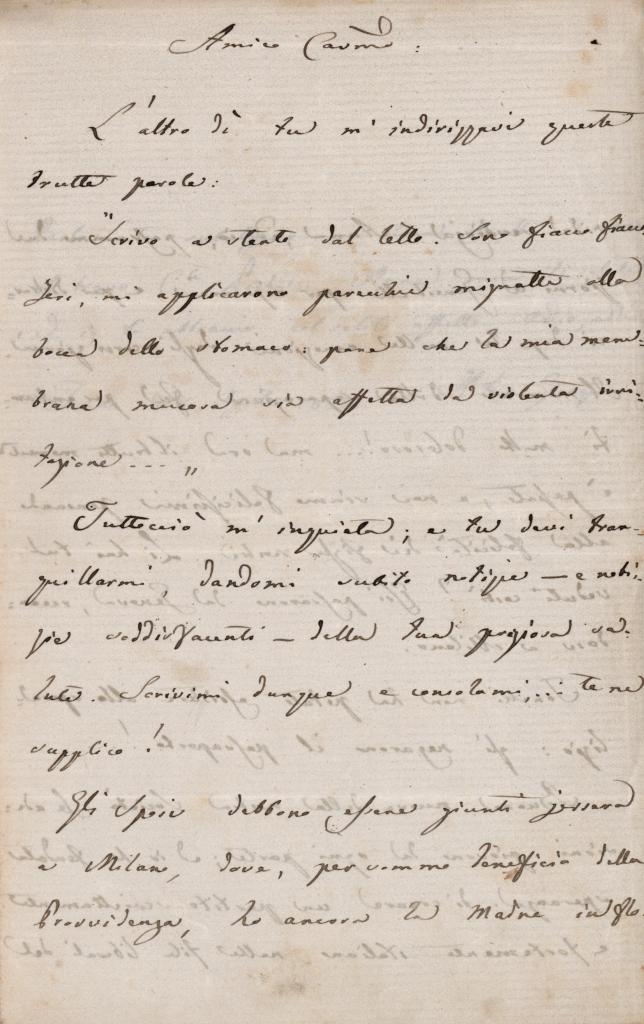 Amico Carmo:
L'altro dì tu m'indirizzavi queste
brutte parole:
"Scrivo a stento dal letto. Sono fiacco fiacco
Jeri, mi applicarono parecchie mignatte alla
bocca dello stomaco: pare che la mia mem-
brana mucosa sia affetta da violenta irri-
tazione ... "
Tuttocciò m'inquieta; e tu devi tran-
quillarmi, dandomi subito notizie — e noti-
zie soddisfacenti — della tua preziosa sa-
lute. Scrivimi dunque e consolami,... te ne
supplico!
Gli Sposi debbono essere giunti jersera
a Milano, dove, per sommo beneficio della
Provvidenza, ho ancora la Madre in flo-